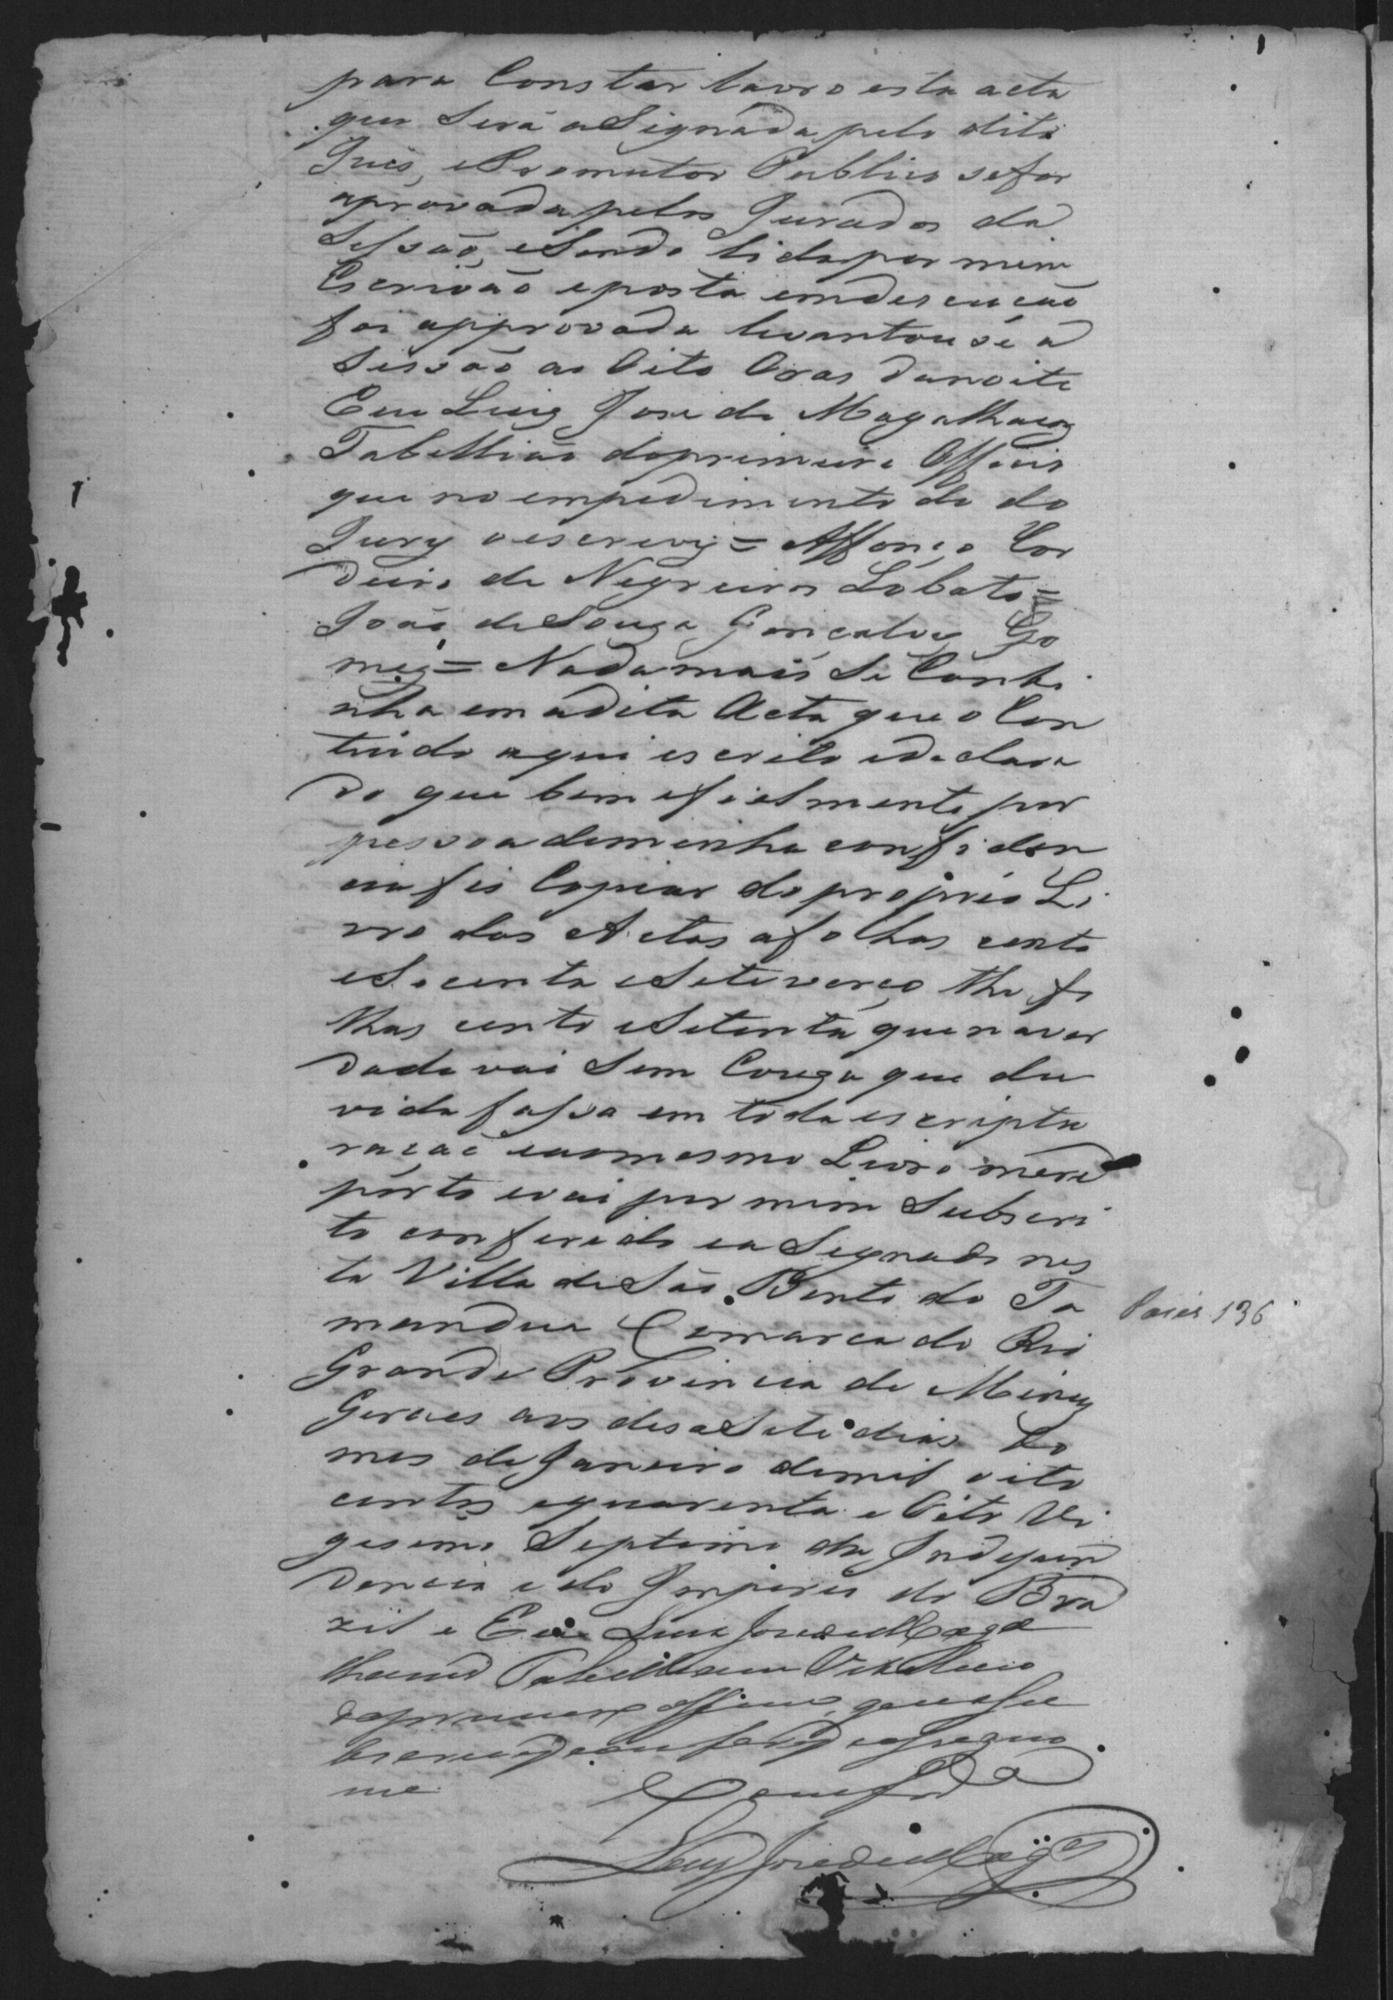 para Constar lavro esta acta
que Será aSignada pelo dito
Juis, e Promutor Publico se for
aprovada pelos Jurados da
Sessão, e Sendo lida por mim
Escrivão e posta em descucão
foi approvada levantou se a
Sessão as Oito Oras da noite
Eu Luiz Jose de Magalhaens
Tabellião do primeiro Officio
que no empedimento do do
Jury o escrevy = Affonço Cor
deiro de Negreiros Lobato =
João de Souza Gonçalves Go
mes = Nada mais Se Conti
nha em a dita Acta que o Con
teudo aqui escrito e declara
do que bem e fielmente por
pessoa de minha confiden
cia fis Copiar do proprio Li
vro das Actas a folhas cento
e Secenta e Sete verço the fo
lhas cento e Setenta que na ver
dade vai Sem Couza que du
vida fassa em toda escriptu
raçaõ e ao mesmo Livro me re
pórto e vai por mim Subscri
to conferido e aSignado nes
ta Villa de São Bento do Ta
mandua Comarca do Rio
Grande Provincia de Minas
Geraes aos desaSete dias do
mes de Janeiro de mil oito
centos e quarenta e Oito Vi
gesimo Septimo da Indepen
dencia e do Imperio do Bra
zil e Eu Luis Jose de Maga
lhaens Tabelliam Vitalicio
do primeiro officio, que a Su
bscrevy conferi e asigno
me
Luis Jose de Mag.es
136